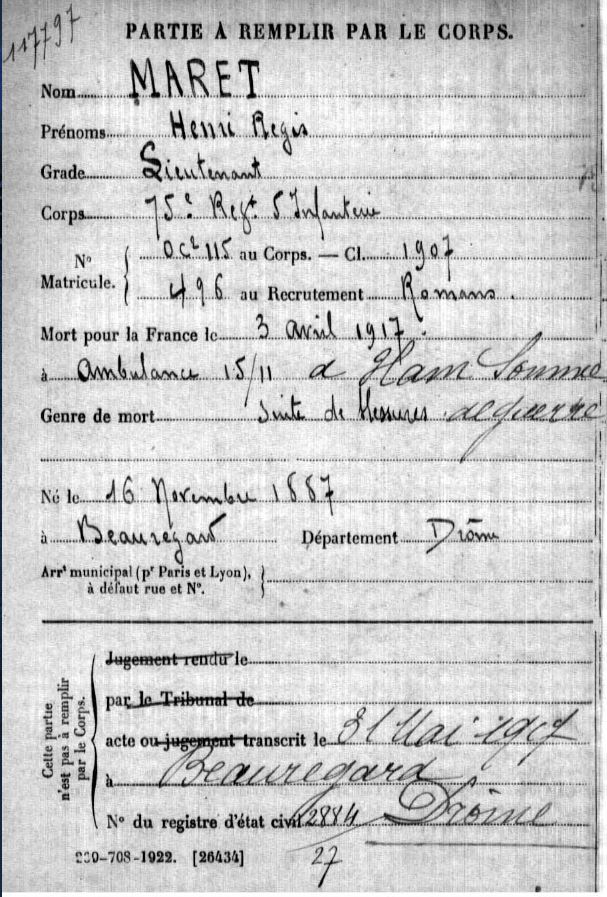 117797
PARTIE À REMPLIR PAR LE CORPS.
Nom MARET
Prénoms Henri Regis
Grade Lieutenant
Corps 75e Regt d'Infanterie
N° Matricule. Oc2 115 au Corps. — Cl. 1907
496 au Recrutement Romans.
Mort pour la France le 3 avril 1917.
à Ambulance 15/11 à Ham Somme
Genre de mort Suite de blessures de guerre
Né le 16 Novembre 1887
à Beauregard Département Drôme
Arrt municipal (pr Paris et Lyon),
à défaut rue et N°.
Cette partie n'est pas à remplir par le Corps.
Jugement rendu le
par le Tribunal de
acte ou jugement transcrit le 31 Mai 1917
à Beauregard
N° du registre d'état civil 2884 Drôme
239-708-1922. [26434] 27